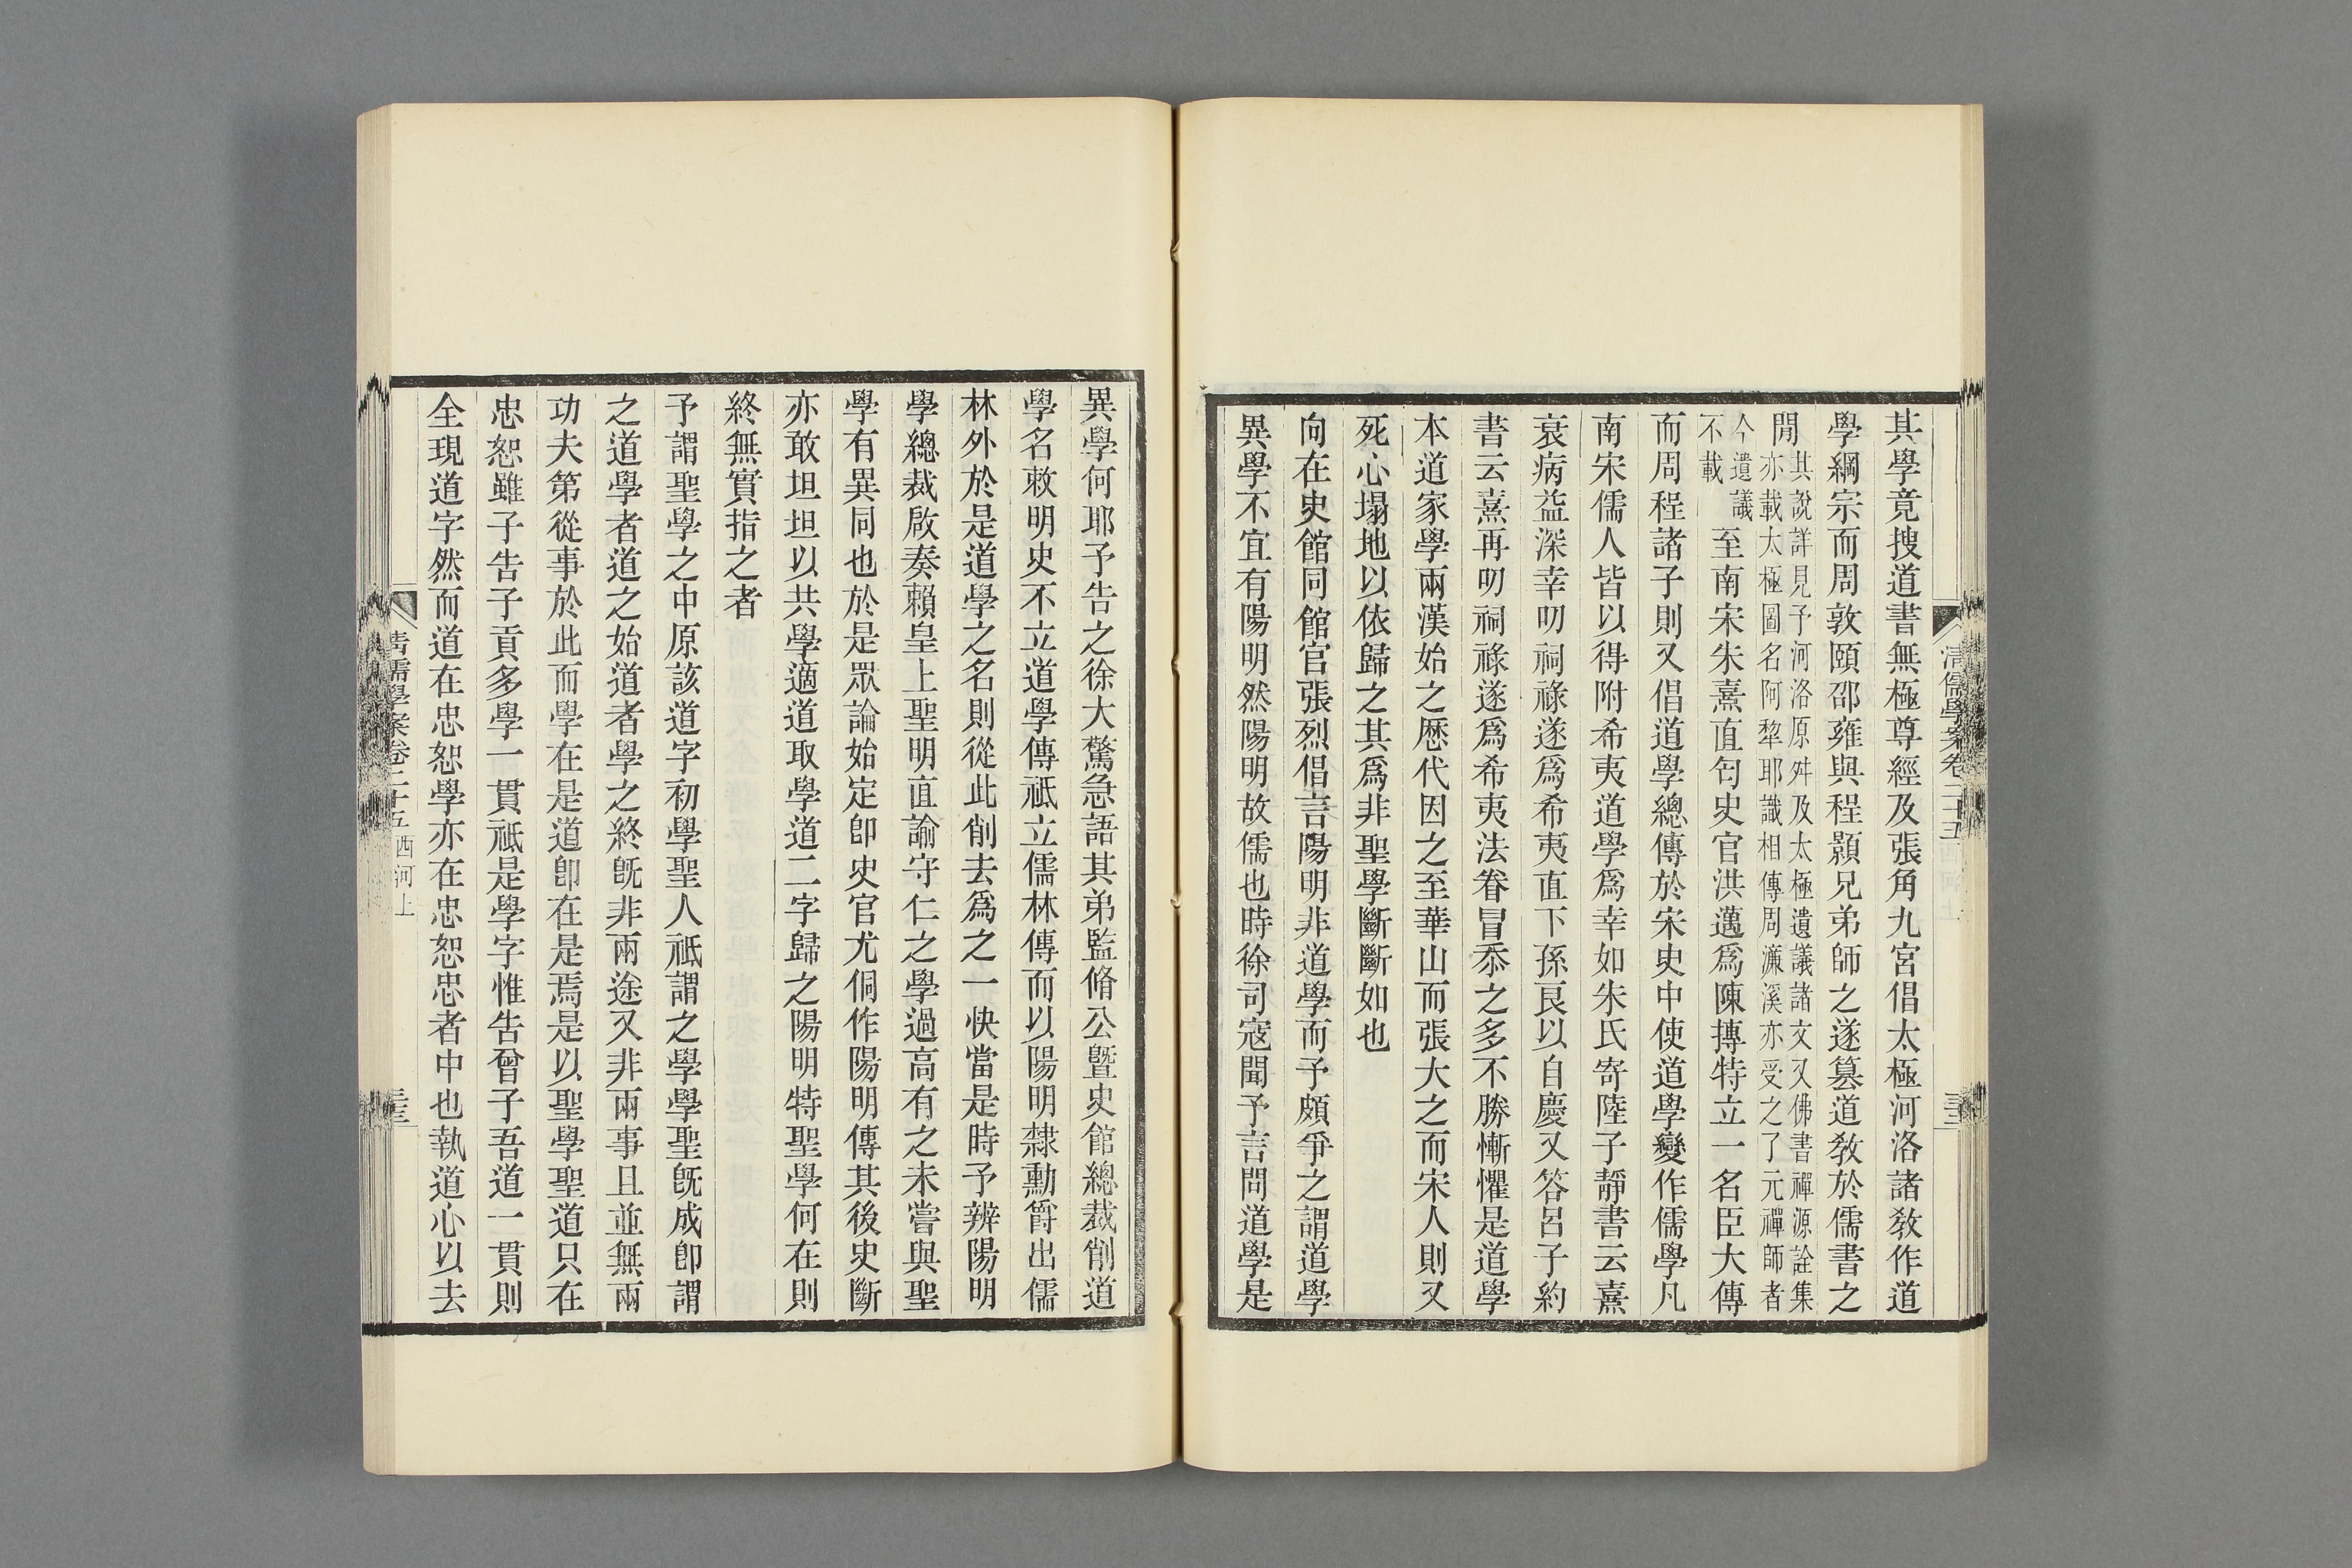 其學竟搜道書無極尊經及張角九宮倡太極河洛諸敎作道
學綱宗而周敦頤邵雍與程顥兄弟師之遂篡道敎於儒書之
閒其說詳見予河洛原舛及太極遺議諸文又佛書禪源詮集
亦載太極圖名阿犂耶識相傳周濂溪亦受之了元禪師者
今遺議
不載
至南宋朱熹直匄史官洪邁爲陳摶特立一名臣大傳
而周程諸子則又倡道學總傳於宋史中使道學變作儒學凡
南宋儒人皆以得附希夷道學爲幸如朱氏寄陸子靜書云熹
衰病益深幸叨祠祿遂爲希夷直下孫良以自慶又答呂子約
書云熹再叨祠祿遂爲希夷法眷冒忝之多不勝慚懼是道學
本道家學兩漢始之歷代因之至華山而張大之而宋人則又
死心塌地以依歸之其爲非聖學斷斷如也
向在史館同館官張烈倡言陽明非道學而予頗爭之謂道學
異學不宜有陽明然陽明故儒也時徐司寇聞予言問道學是
異學何耶予告之徐大驚急語其弟監脩公曁史館總裁削道
學名敕明史不立道學傳祗立儒林傳而以陽明隸勳爵出儒
林外於是道學之名則從此削去爲之一快當是時予辨陽明
學總裁啟奏賴皇上聖明直諭守仁之學過高有之未嘗與聖
學有異同也於是眾論始定卽史官尤侗作陽明傳其後史斷
亦敢坦坦以共學適道取學道二字歸之陽明特聖學何在則
終無實指之者
予謂聖學之中原該道字初學聖人祗謂之學學聖旣成卽謂
之道學者道之始道者學之終旣非兩途又非兩事且並無兩
功夫第從事於此而學在是道卽在是焉是以聖學聖道只在
忠恕雖子告子貢多學一貫祗是學字惟告曾子吾道一貫則
全現道字然而道在忠恕學亦在忠恕忠者中也執道心以去
清儒學案卷二十五
清儒學案卷二十五 西河上